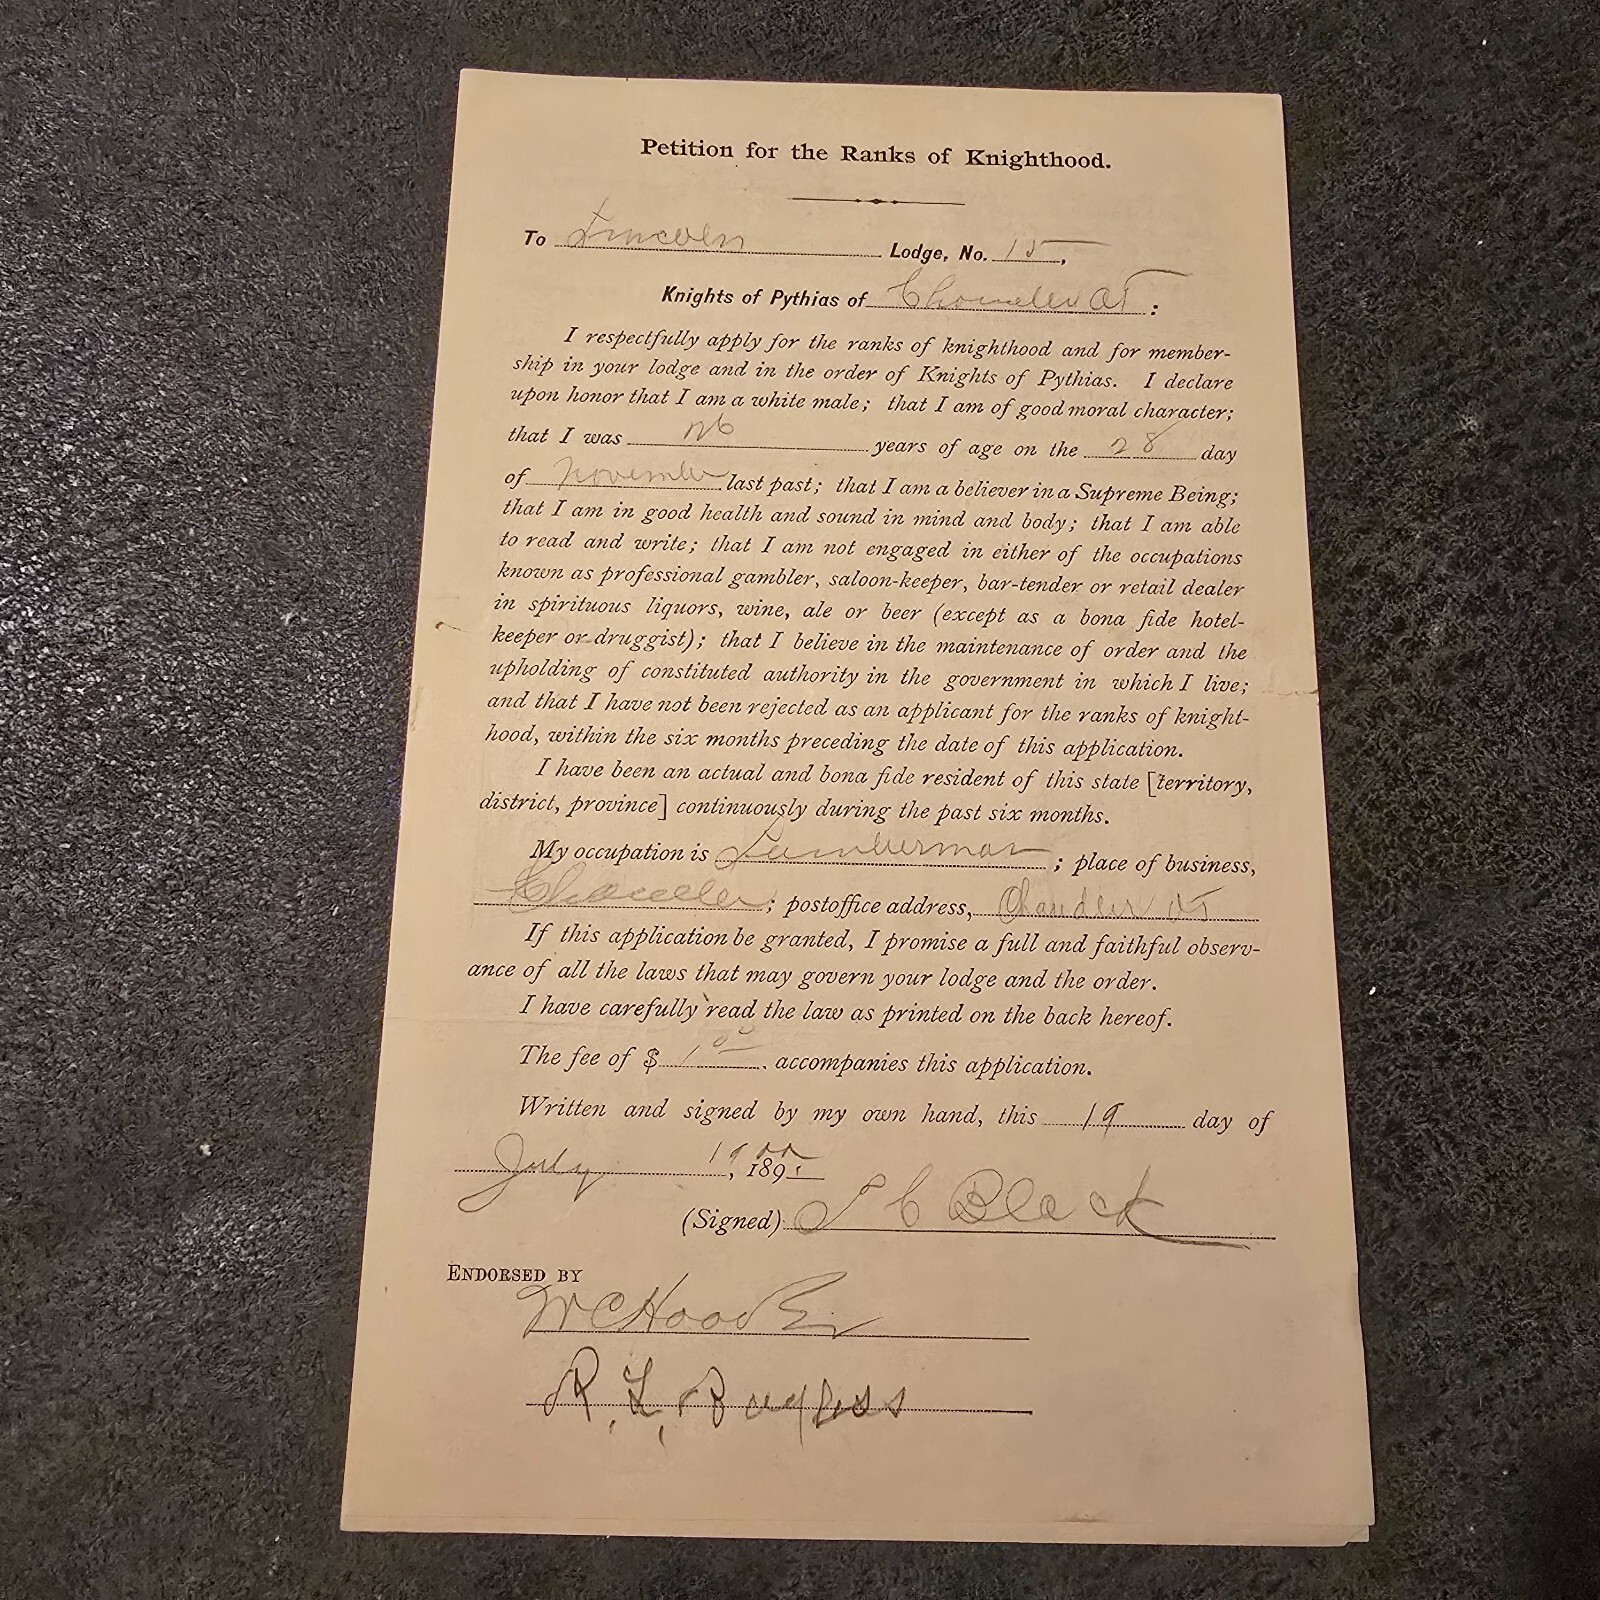 Petition for the Ranks of Knighthood.
To Lincoln Lodge, No. 15,
Knights of Pythias of Chandler OT :
I respectfully apply for the ranks of knighthood and for member-
ship in your lodge and in the order of Knights of Pythias. I declare
upon honor that I am a white male; that I am of good moral character;
that I was 26 years of age on the 28 day
of November last past; that I am a believer in a Supreme Being;
that I am in good health and sound in mind and body; that I am able
to read and write; that I am not engaged in either of the occupations
known as professional gambler, saloon-keeper, bar-tender or retail dealer
in spirituous liquors, wine, ale or beer (except as a bona fide hotel-
keeper or druggist); that I believe in the maintenance of order and the
upholding of constituted authority in the government in which I live;
and that I have not been rejected as an applicant for the ranks of knight-
hood, within the six months preceding the date of this application.
I have been an actual and bona fide resident of this state [territory,
district, province] continuously during the past six months.
My occupation is Lumberman ; place of business,
Chandler ; postoffice address, Chandler OT
If this application be granted, I promise a full and faithful observ-
ance of all the laws that may govern your lodge and the order.
I have carefully read the law as printed on the back hereof.
The fee of $ 1 00 accompanies this application.
Written and signed by my own hand, this 19 day of
July 1900, 189
(Signed) C Black
ENDORSED BY
W C Hood
R. L.